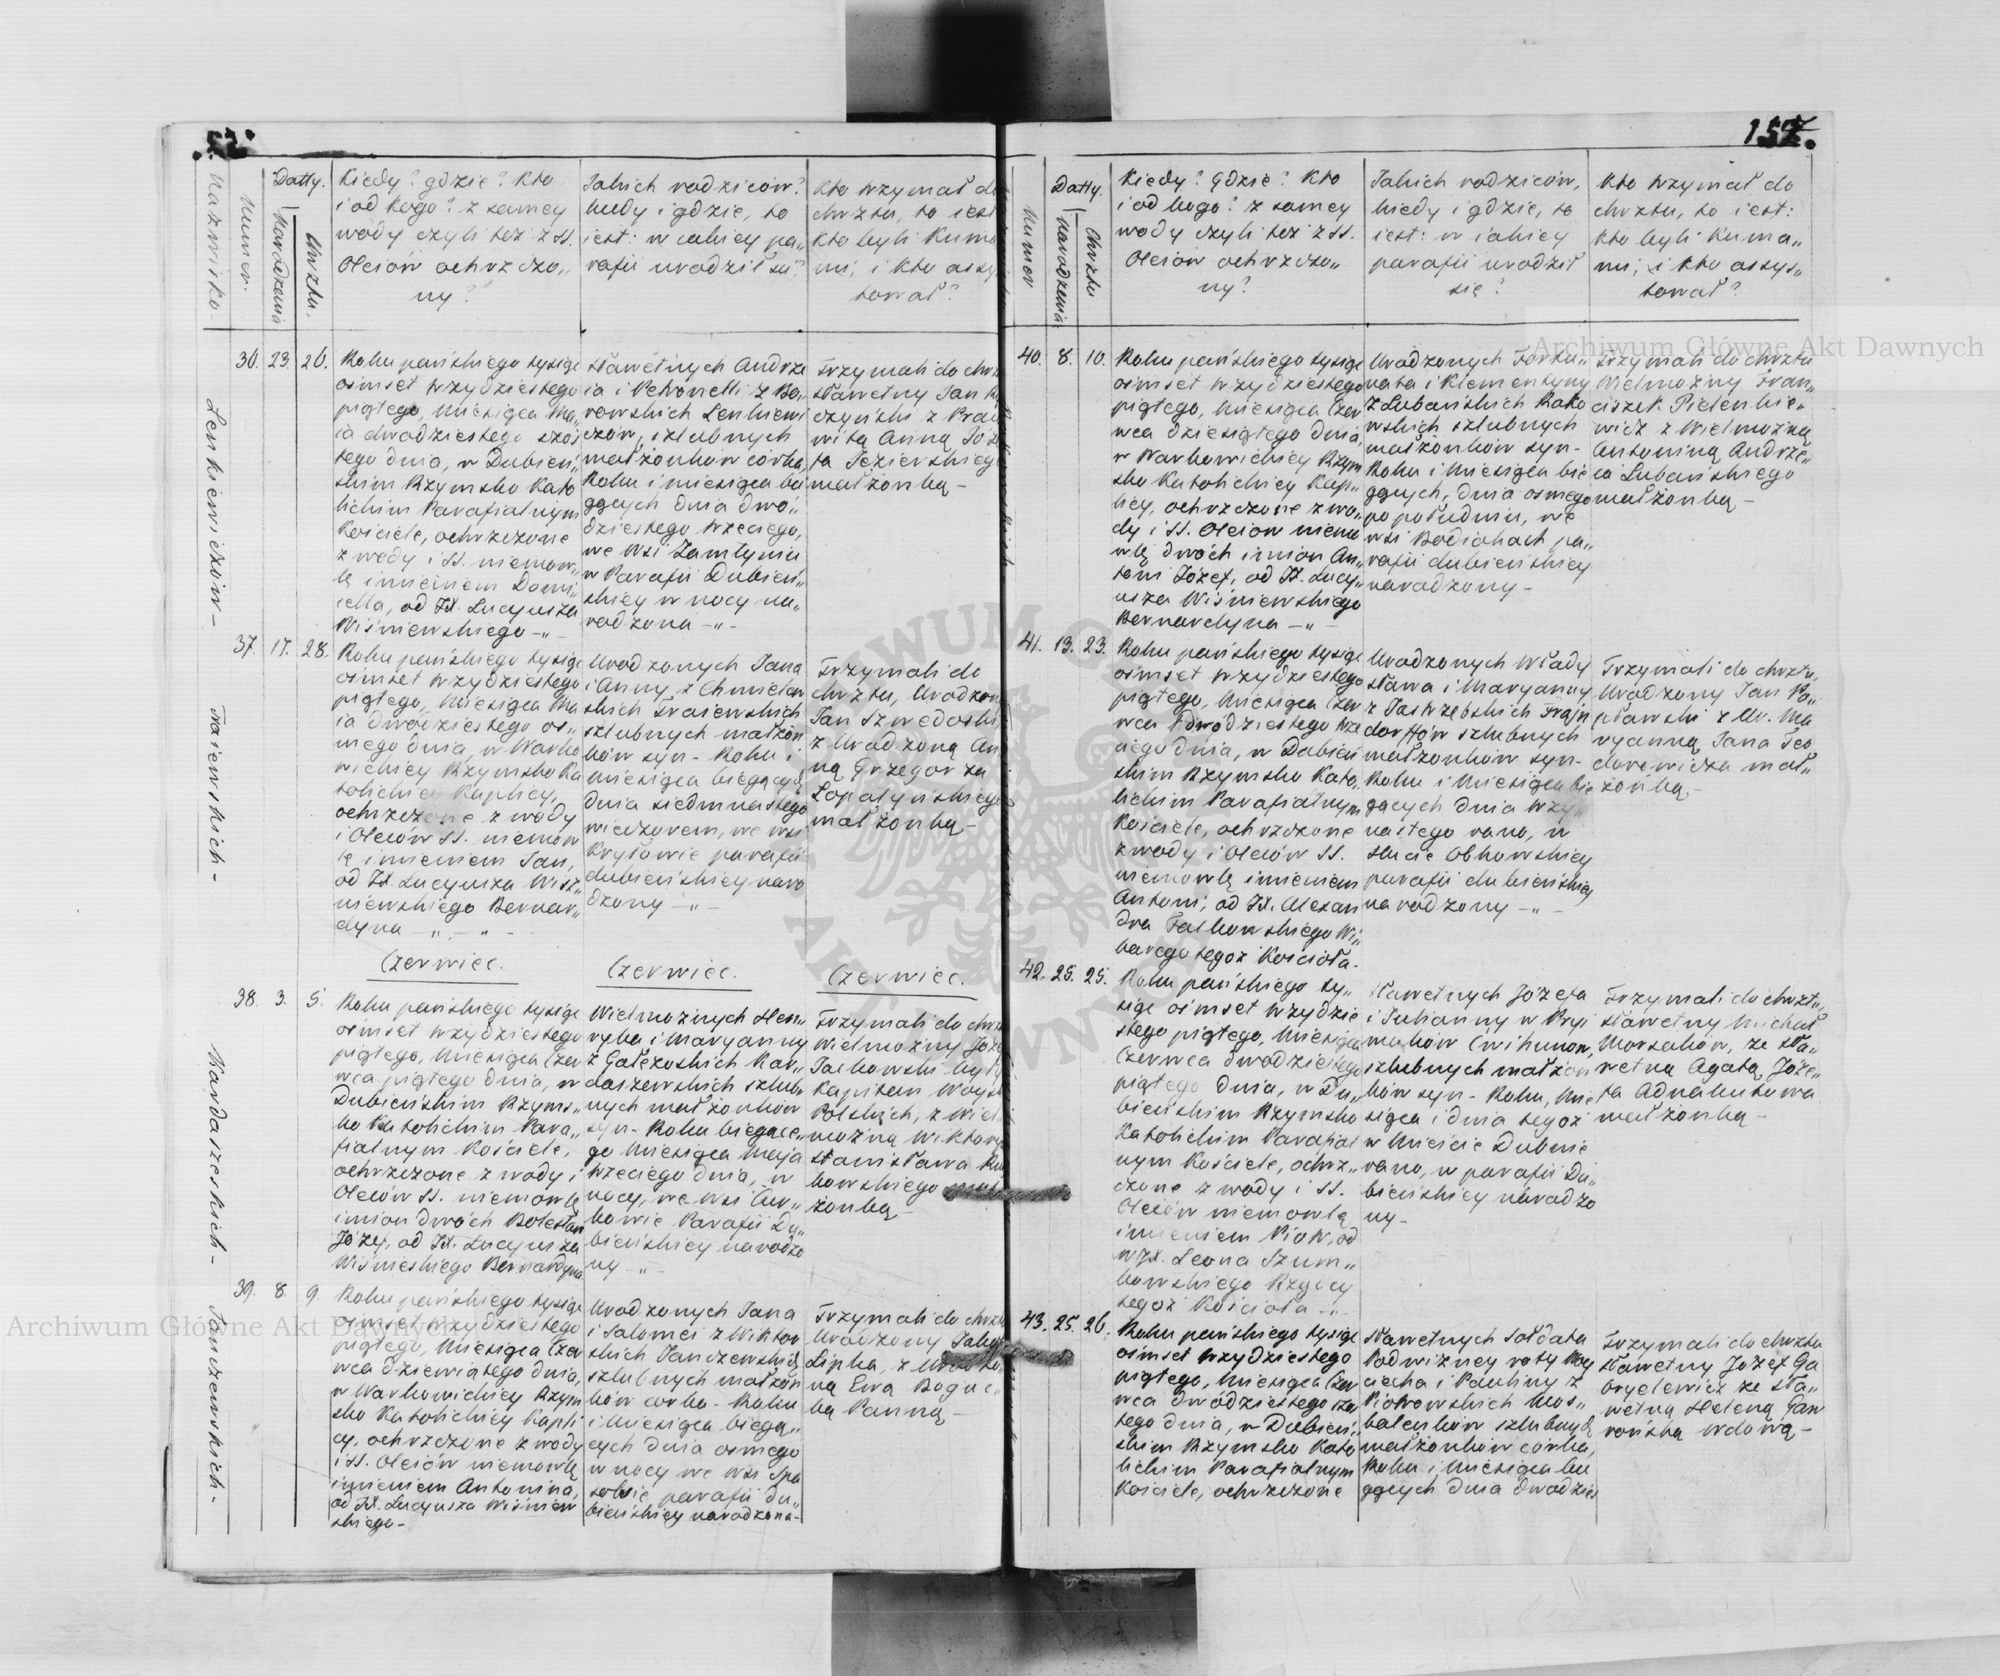 157.
Nazwisko.
Numer.
Datty.
Narodzenia
Chrztu.
Kiedy? gdzie? Kto
i od kogo? z samey
wody czyli też z SS.
Oleiów ochrzczo„
ny?
Jakich rodziców?
kiedy i gdzie, to
iest: w iakiey pa„
rafii urodził się?
Kto trzymał do
chrztu, to iest
Kto byli Kuma
mi; i Kto assy
tował?
Lenkiewiczów –
36. 23. 26.
Roku pańskiego tysiąc
ośmset trzydziestego
piątego, Miesiąca Ma„
ia dwudziestego szós
tego dnia, w Dubień„
skim Rzymsko Kato
lickim Parafialnym
Kościele, ochrzczone
z wody i SS. niemow„
lę imieniem Domi„
cella, od JX. Lucyusza
Wiśniewskiego –„–
Sławetnych Andrze
ia i Petronelli z Bo„
rowskich Lenkiewi
czów, szlubnych
małżonków córka,
Roku i miesiąca bie
gących dnia dwó„
dziestego trzeciego,
we Wsi Zamłyniu
w Parafii Dubień„
skiey w nocy na„
rodzona –„–
Trzymali do chrz
sławetny Jan
czyński z Prac
witą Anną Józ
fa Jezierskieg
małżonką –
Traiewskich –
37. 17. 28.
Roku pańskiego tysiąc
ośmset trzydziestego
piątego, Miesiąca Ma
ia dwudziestego os„
mego dnia, w Warko
wickiey Rzymsko Ka
tolickiey Kaplicy,
ochrzczone z wody
i Oleiów SS. niemow
lę imieniem Jan,
od JX. Lucyusza Wiśz„
niewskiego Bernar„
dyna –„–„–
Urodzonych Jana
i Anny z Chmielew
skich Traiewskich
szlubnych małżon
ków syn – Roku i
miesiąca biegących
dnia siedmnastego
wieczorem, we wsi
Kryłowie parafii
dubieńskiey naro
dzony –„–
Trzymali do
chrztu, Urodzon
Jan Szwedosk
z Urodzoną An
ną Grzegorza
Łopatyńskieg
małżonką –
Czerwiec.
Czerwiec.
Czerwiec.
Kardaszeskich –
38. 3. 5.
Roku pańskiego tysiąc
ośmset trzydziestego
piątego, Miesiąca Czer
wca piątego dnia, w
Dubieńskim Rzyms„
ko Katolickim Para„
fialnym Kościele,
ochrzczone z wody i
Oleiów SS. niemowlę
imion dwóch Bolesław
Józef, od JX. Lucyusza
Wiśnieskiego Bernardyna
Wielmożnych Hen„
ryka i Maryanny
z Gałęzoskich Kar„
daszewskich szlub„
nych małżonków
syn – Roku biegące„
go Miesiąca Maja
trzeciego dnia, w
nocy, we wsi
bowie Parafii Du„
bieńskiey narodzo
ny –„–
Trzymali do chrz
Wielmożny Józe
Jackowski były
Kapitan Woysk
Polskich, z Wiel
możną Wiktory
Stanisława
kowskiego mał
żonką –
Janczewskich –
39. 8. 9.
Roku pańskiego tysiąc
ośmset trzydziestego
piątego, Miesiąca Czer
wca dziewiątego dnia,
w Warkowickiey Rzym
sko Katolickiey Kapli
cy, ochrzczone z wody
i SS. Oleiów niemowlę
imieniem Antonina,
od JX. Lucyusza Wiśniew
skiego –
Urodzonych Jana
i Salomei z Wiktor
skich Janczewskich
szlubnych małżon
ków córka – Roku
i Miesiąca biegą„
cych dnia osmego
w nocy we Wsi Spa
sowie parafii du„
bieńskiey narodzona –
Trzymali do chrztu
Urodzony Jakó
Lipka, z Urodzo
ną Ewą Boguc„
ką Panną –
Numer
Datty.
Narodzenia
Chrztu
Kiedy? Gdzie? Kto
i od kogo? z samey
wody czyli też z SS.
Oleiów ochrzczo„
ny?
Jakich rodziców,
kiedy i gdzie, to
iest: w iakiey
parafii urodził
się?
Kto trzymał do
chrztu, to iest:
Kto byli Kuma„
mi; i Kto assys„
tował?
40. 8. 10.
Roku pańskiego tysiąc
ośmset trzydziestego
piątego, Miesiąca Czer
wca dziesiątego dnia,
w Warkowickiey Rzym
sko Katolickiey Kap„
licy, ochrzczone z wo„
dy i SS. Oleiow niemo
wlę dwóch imion An„
toni Józef, od JX. Lucy„
usza Wiśniewskiego
Bernardyna –„–
Urodzonych Fortu„
nata i Klementyny
z Lubańskich Rako
wskich szlubnych
małżonków syn –
Roku i Miesiąca bie
gących, dnia osmego
po południu, we
wsi Bodiakach pa„
rafii dubieńskiey
narodzony –
Trzymali do chrztu
Wielmożny Fran„
ciszek Pietkie„
wicz z Wielmożną
Antoniną Andrze„
ia Lubańskiego
małżonką –
41. 13. 23.
Roku pańskiego tysiąc
ośmset trzydziestego
piątego, Miesiąca Czer
wca dwódziestego trze
ciego dnia, w Dubień
skim Rzymsko Kato„
lickim Parafialnym
Kościele, ochrzczone
z wody i Oleiów SS.
niemowlę imieniem
Antoni, od JX. Alexan
dra Falkowskiego Wi„
karego tegoż Kościoła –
Urodzonych Włady
sława i Maryanny
z Jastrzębskich Frajn
dorffów szlubnych
małżonków syn –
Roku i Miesiąca bie
gących dnia trzy„
nastego rano, w
Słucie Obkowskiey
parafii dubieńskiey
narodzony –„–
Trzymali do chrztu,
Urodzony Jan Po„
pławski z Ur. Ma
ryanną Jana Teo
dorowicza mał„
żonką –
42. 25. 25.
Roku pańskiego ty„
siąc ośmset trzydzie
stego piątego, Miesiąca
Czerwca dwódziestego
piątego dnia, w Du„
bieńskim Rzymsko
Katolickim Parafial
nym Kościele, ochrz„
czone z wody i SS.
Oleiów niemowlę
imieniem Piotr, od
WJX. Leona Szum„
kowskiego Rządcy
tegoż Kościoła –„–
Sławetnych Józefa
i Julianny w Pryi
maków Cwikunow,
szlubnych małżon
ków syn – Roku, Mie
siąca i dnia tegoż
w Mieście Dubnie
rano, w parafii Du„
bieńskiey narodzo
ny –
Trzymali do chrztu,
sławetny Michał
Morzaków, ze sła„
wetną Agatą Józe„
fa Adnakutowa
małżonką –
43. 25. 26.
Roku pańskiego tysiąc
ośmset trzydziestego
piątego, Miesiąca Czer
wca dwódziestego szós
tego dnia, w Dubień„
skim Rzymsko Kato
lickim Parafialnym
Kościele, ochrzczone
Sławetnych Sołdata
Podwiżney roty Woy
ciecha i Pauliny z
Piotrowskich Mos„
kalenków szlubnych
małżonków córka,
Roku i Miesiąca bie
gących dnia dwódzies
Trzymali do chrztu
sławetny Józef Ga
brydewicz ze sła„
wetną Heleną Gaw
rońską wdową –
Archiwum Główne Akt Dawnych
Archiwum Główne Akt Dawnych